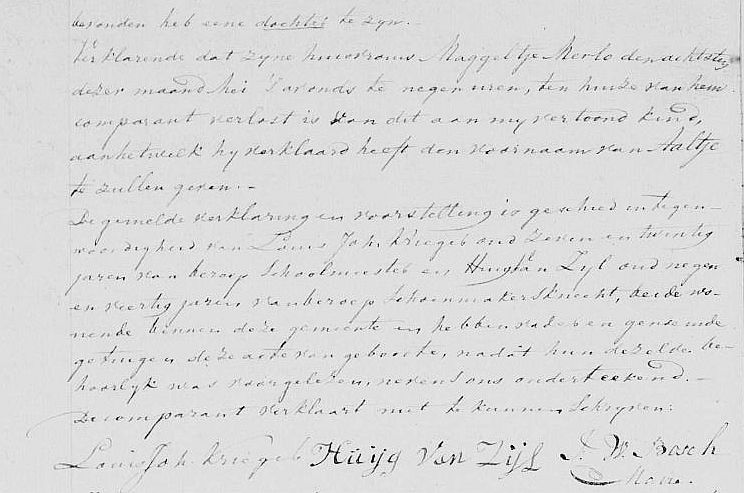 bevonden heb eene dochter te zyn. -
Verklarende dat zyne huisvrouw Maggeltje Merlo den achtsten
dezer maand Mei 's avonds te negen uren, ten huize van hem
comparant verlost is van dit aan my vertoond kind,
aan hetwelk hy verklaard heeft den voornaam van Aaltje
te zullen geven. -
De gemelde verklaring en voorstelling is geschied in tegen-
woordigheid van Louis Joh. Kriegeb oud zeven en twintig
jaren van beroep Schoolmeester en Huig van Zyl oud negen
en veertig jaren van beroep Schoenmakersknecht, beide wo-
nende binnen deze gemeente en hebben vader en genoemde
getuigen deze acte van geboorte, nadat hun dezelve be-
hoorlyk was voorgelezen, nevens ons onderteekend. -
De comparant verklaart niet te kunnen Schryven.
Louis Joh. Kriegeb Huijg Van Zijl J. W. Bosch